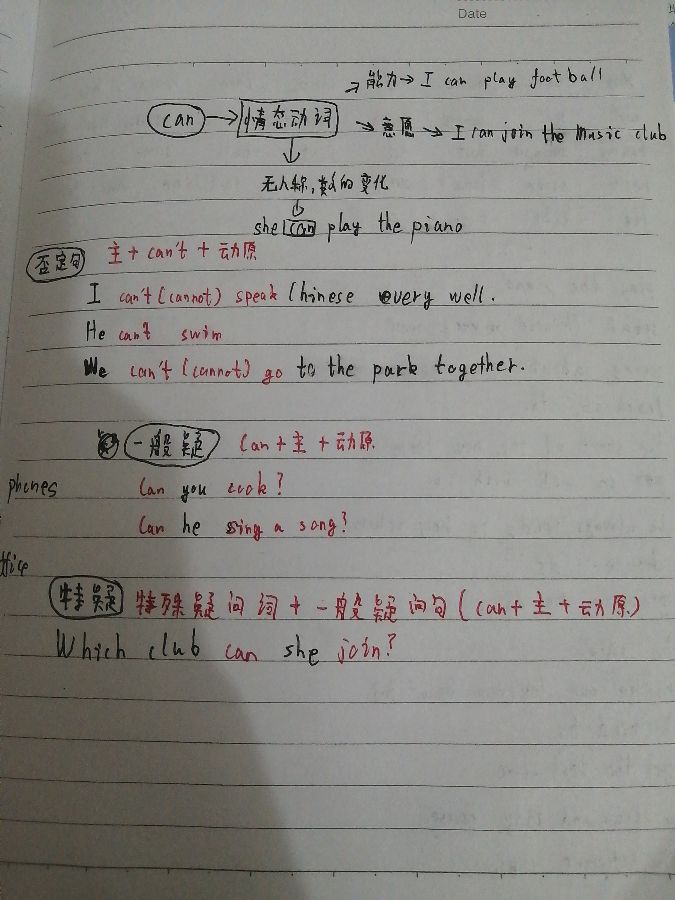 Date
→ 能力 → I can play football
can → 情态动词 → 意愿 → I can join the music club
↓
无人称,数的变化
↓
she can play the piano
否定句 主 + can't + 动原
I can't (cannot) speak Chinese every well.
He can't swim
We can't (cannot) go to the park together.
一般疑 Can + 主 + 动原
phones Can you cook?
Can he sing a song?
特疑 特殊疑问词 + 一般疑问句 (can + 主 + 动原)
Which club can she join?